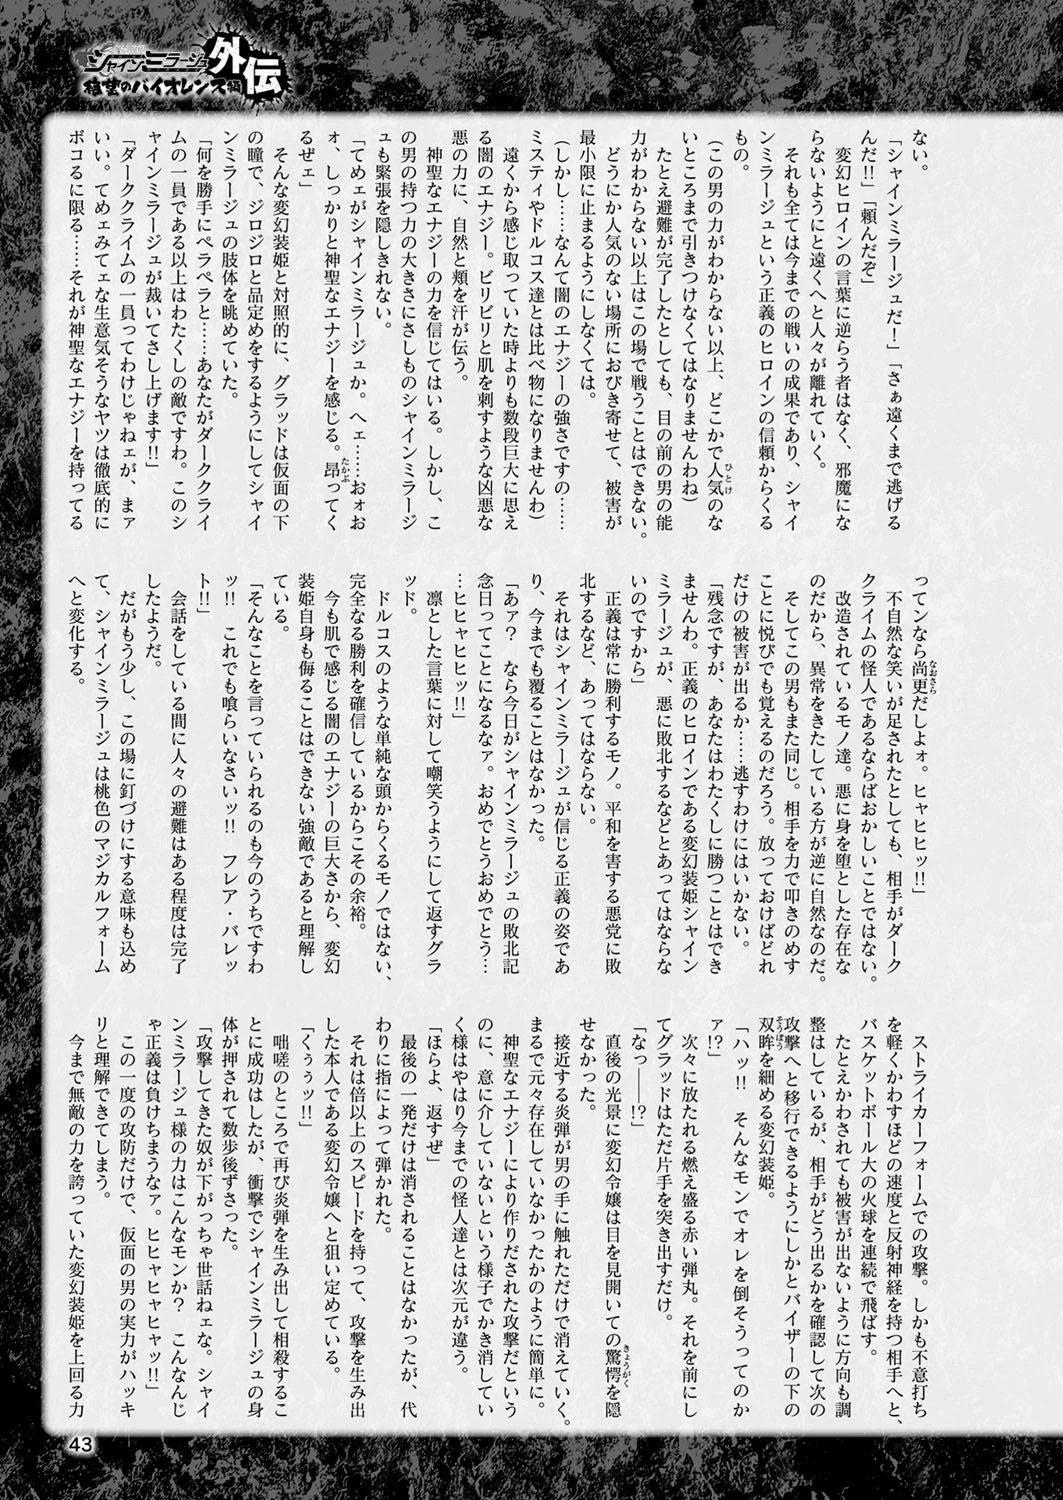 シャインミラージュ
外伝
のバイオレンス編
ない。
「シャインミラージュだ!」「さぁ遠くまで逃げる
んだ!!」「頼んだぞ」
　変幻ヒロインの言葉に逆らう者はなく、邪魔にな
らないようにと遠くへと人々が離れていく。
　それも全ては今までの戦いの成果であり、シャイ
ンミラージュという正義のヒロインの信頼からくる
もの。
(この男の力がわからない以上、どこかで人気のな
いところまで引きつけなくてはなりませんわね)
　たとえ避難が完了したとしても、目の前の男の能
力がわからない以上はこの場で戦うことはできない。
　どうにか人気のない場所におびき寄せて、被害が
最小限に止まるようにしなくては。
(しかし……なんて闇のエナジーの強さですの……
ミスティやドルコス達とは比べ物になりませんわ)
　遠くから感じ取っていた時よりも数段巨大に思え
る闇のエナジー。ビリビリと肌を刺すような凶悪な
悪の力に、自然と頬を汗が伝う。
　神聖なエナジーの力を信じてはいる。しかし、こ
の男の持つ力の大きさにさしものシャインミラージ
ュも緊張を隠しきれない。
「てめェがシャインミラージュか。へェ……おォお
ォ、しっかりと神聖なエナジーを感じる。昂ってく
るぜェ」
　そんな変幻装姫と対照的に、グラッドは仮面の下
の瞳で、ジロジロと品定めをするようにしてシャイ
ンミラージュの肢体を眺めていた。
「何を勝手にペラペラと……あなたがダーククライ
ムの一員である以上はわたくしの敵ですわ。このシ
ャインミラージュが裁いてさし上げます!!」
「ダーククライムの一員ってわけじゃねェが、まァ
いい。てめェみてェな生意気そうなヤツは徹底的に
ボコるに限る……それが神聖なエナジーを持ってる
ってンなら尚更だしよォ。ヒャヒヒッ!!」
　不自然な笑いが足されたとしても、相手がダーク
クライムの怪人であるならばおかしいことではない。
　改造されているモノ達。悪に身を堕とした存在な
のだから、異常をきたしている方が逆に自然なのだ。
　そしてこの男もまた同じ。相手を力で叩きのめす
ことに悦びでも覚えるのだろう。放っておけばどれ
だけの被害が出るか……逃すわけにはいかない。
「残念ですが、あなたはわたくしに勝つことはでき
ませんわ。正義のヒロインである変幻装姫シャイン
ミラージュが、悪に敗北するなどとあってはならな
いのですから」
　正義は常に勝利するモノ。平和を害する悪党に敗
北するなど、あってはならない。
　それはシャインミラージュが信じる正義の姿であ
り、今までも覆ることはなかった。
「あァ?　なら今日がシャインミラージュの敗北記
念日ってことになるなァ。おめでとうおめでとう…
…ヒヒャヒヒッ!!」
　凛とした言葉に対して嘲笑うようにして返すグラ
ッド。
　ドルコスのような単純な頭からくるモノではない、
完全なる勝利を確信しているからこその余裕。
　今も肌で感じる闇のエナジーの巨大さから、変幻
装姫自身も侮ることはできない強敵であると理解し
ている。
「そんなことを言っていられるのも今のうちですわ
ッ!!　これでも喰らいなさいッ!!　フレア・バレッ
ト!!」
　会話をしている間に人々の避難はある程度は完了
したようだ。
　だがもう少し、この場に釘づけにする意味も込め
て、シャインミラージュは桃色のマジカルフォーム
へと変化する。
　ストライカーフォームでの攻撃。しかも不意打ち
を軽くかわすほどの速度と反射神経を持つ相手へと、
バスケットボール大の火球を連続で飛ばす。
　たとえかわされても被害が出ないように方向も調
整はしているが、相手がどう出るかを確認して次の
攻撃へと移行できるようにしかとバイザーの下の
双眸を細める変幻装姫。
「ハッ!!　そんなモンでオレを倒そうってのか
ァ!?」
　次々に放たれる燃え盛る赤い弾丸。それを前にし
てグラッドはただ片手を突き出すだけ。
「なっ――!?」
　直後の光景に変幻令嬢は目を見開いての驚愕を隠
せなかった。
　接近する炎弾が男の手に触れただけで消えていく。
まるで元々存在していなかったかのように簡単に。
　神聖なエナジーにより作りだされた攻撃だという
のに、意に介していないという様子でかき消してい
く様はやはり今までの怪人達とは次元が違う。
「ほらよ、返すぜ」
　最後の一発だけは消されることはなかったが、代
わりに指によって弾かれた。
　それは倍以上のスピードを持って、攻撃を生み出
した本人である変幻令嬢へと狙い定めている。
「くぅぅッ!!」
　咄嗟のところで再び炎弾を生み出して相殺するこ
とに成功はしたが、衝撃でシャインミラージュの身
体が押されて数歩後ずさった。
「攻撃してきた奴が下がっちゃ世話ねェな。シャイ
ンミラージュ様の力はこんなモンか?　こんなんじ
ゃ正義は負けちまうなァ。ヒヒャヒャヒャッ!!」
　この一度の攻防だけで、仮面の男の実力がハッキ
リと理解できてしまう。
　今まで無敵の力を誇っていた変幻装姫を上回る力
43